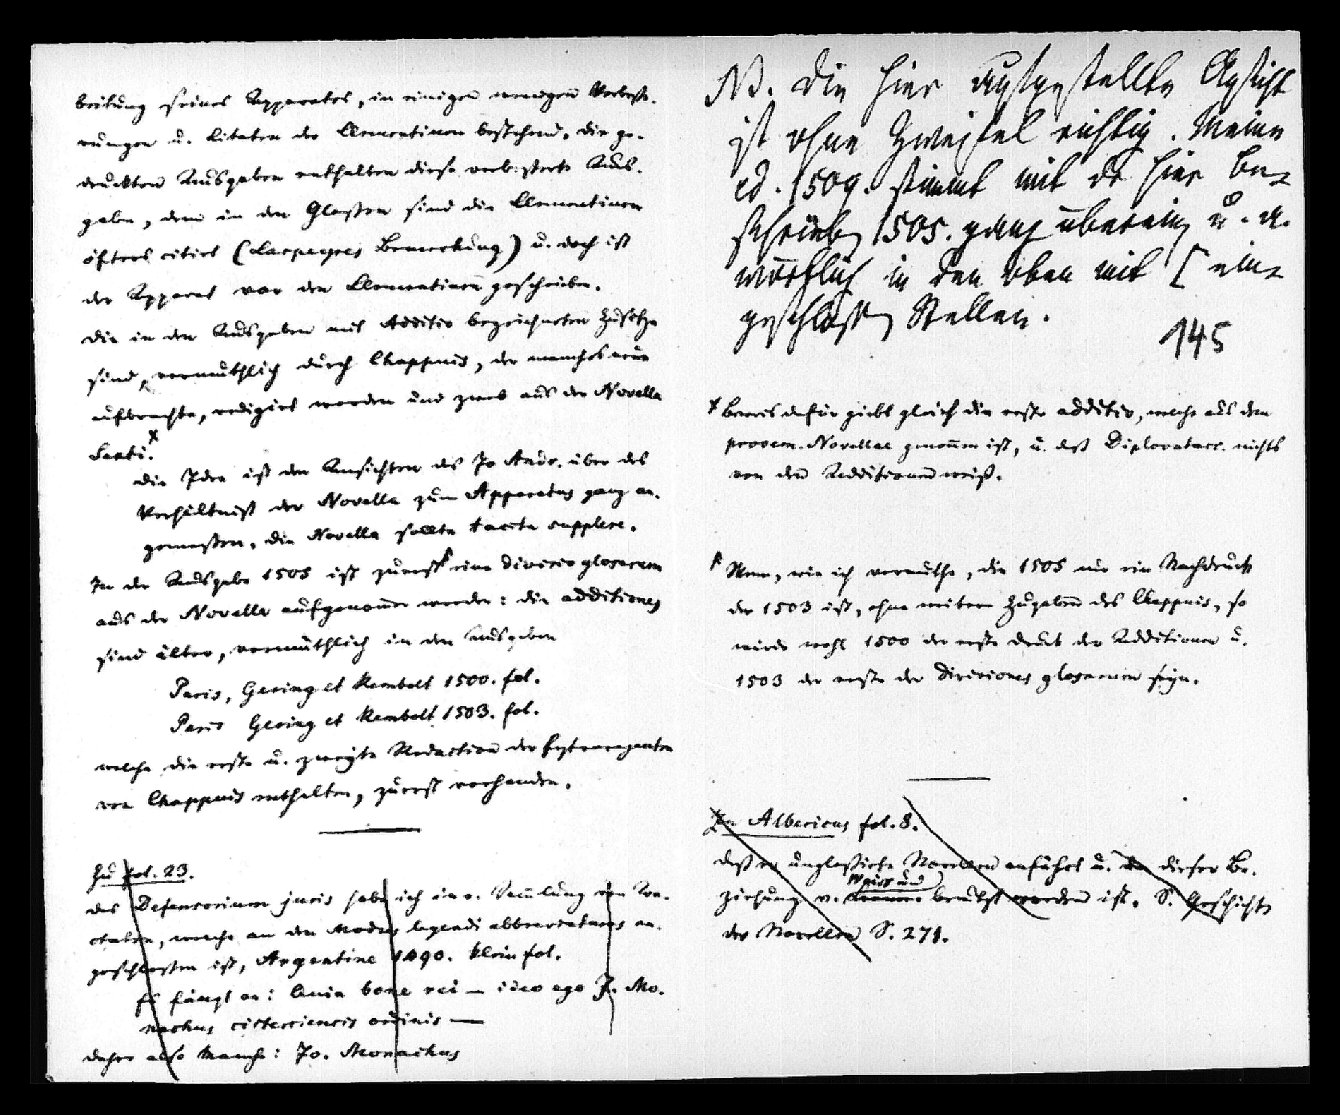 beitung seines Apparates, in einigen wenigen Verbesse-
rungen u. Citaten der Clementinen bestehend, die ge-
druckten Ausgaben enthalten diese verbesserte Aus-
gabe, denn in den Glossen sind die Clementinen
öfters citirt (Laspeyres Bemerkung) u. doch ist
der Apparat vor den Clementinen geschrieben.
Die in den Ausgaben mit Additio bezeichneten Zusätze
sind, vermuthlich durch Chappuis, der manches neue
aufbrachte, redigirt worden und zwar aus der Novella
Sexti. x
Die Idee ist den Ansichten des Jo Andr. über das
Verhältniß der Novella zum Apparatus ganz an-
gemessen, die Novella sollte tacite supplere.
In der Ausgabe 1505 ist zuerst eine divisio glosarum
aus der Novella aufgenommen worden: die additiones
sind älter, vermuthlich in den Ausgaben
Paris, Gering et Rembolt 1500. fol.
Paris Gering et Rembolt 1503. fol.
welche die erste u. zweyte Redaction der Extravaganten
von Chappuis enthalten, zuerst vorhanden.
Zu fol. 23.
das Defensorium juris habe ich in e. Samlung von Trac-
taten, welche an den Modus legendi abbreviaturas an-
geschlossen ist, Argentine 1490. klein fol.
Es fängt an: Quia bone rei — ideo ego J. Mo-
nachus cisterciensis ordinis —
daher also Manche: Jo. Monachus
NB. Die hier aufgestellte Ansicht
ist ohne Zweifel richtig. Meine
ed. 1509. stimmt mit der hier be-
schrieben 1505. ganz überein, u. a.
wörtlich in den oben mit [ ein-
geschloßnen Stellen.
145
x Beweis dafür giebt gleich die erste additio, welche aus dem
prooem. Novellae genommen ist, u. daß Diplovatacc. nichts
von den Additionen weiß.
Wenn, wie ich vermuthe, die 1505 nur ein Nachdruck
der 1503 ist, ohne weitere Zugaben des Chappuis, so
würde wohl 1500 der erste Druck der Additionen u.
1503 der erste der Divisiones glosarum seyn.
Zu Albericus fol. 8.
daß er unglossirte Novellen anführt u. in dieser Be-
Weiss und
ziehung v. benutzt worden ist. S. Geschichte
der Novellen S. 271.